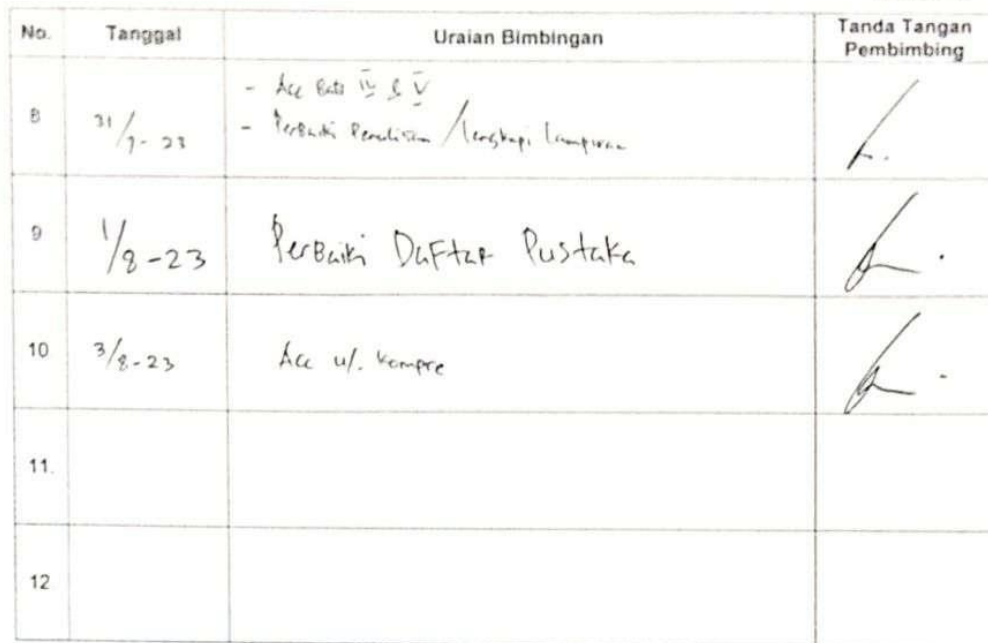 No. Tanggal Uraian Bimbingan Tanda Tangan
Pembimbing
- Acc Bab IV & V
8 31/7-23 - Perbaiki Penulisan / lengkapi lampiran
9 1/8-23 Perbaiki Daftar Pustaka
10 3/8-23 Acc u/. Kompre
11.
12